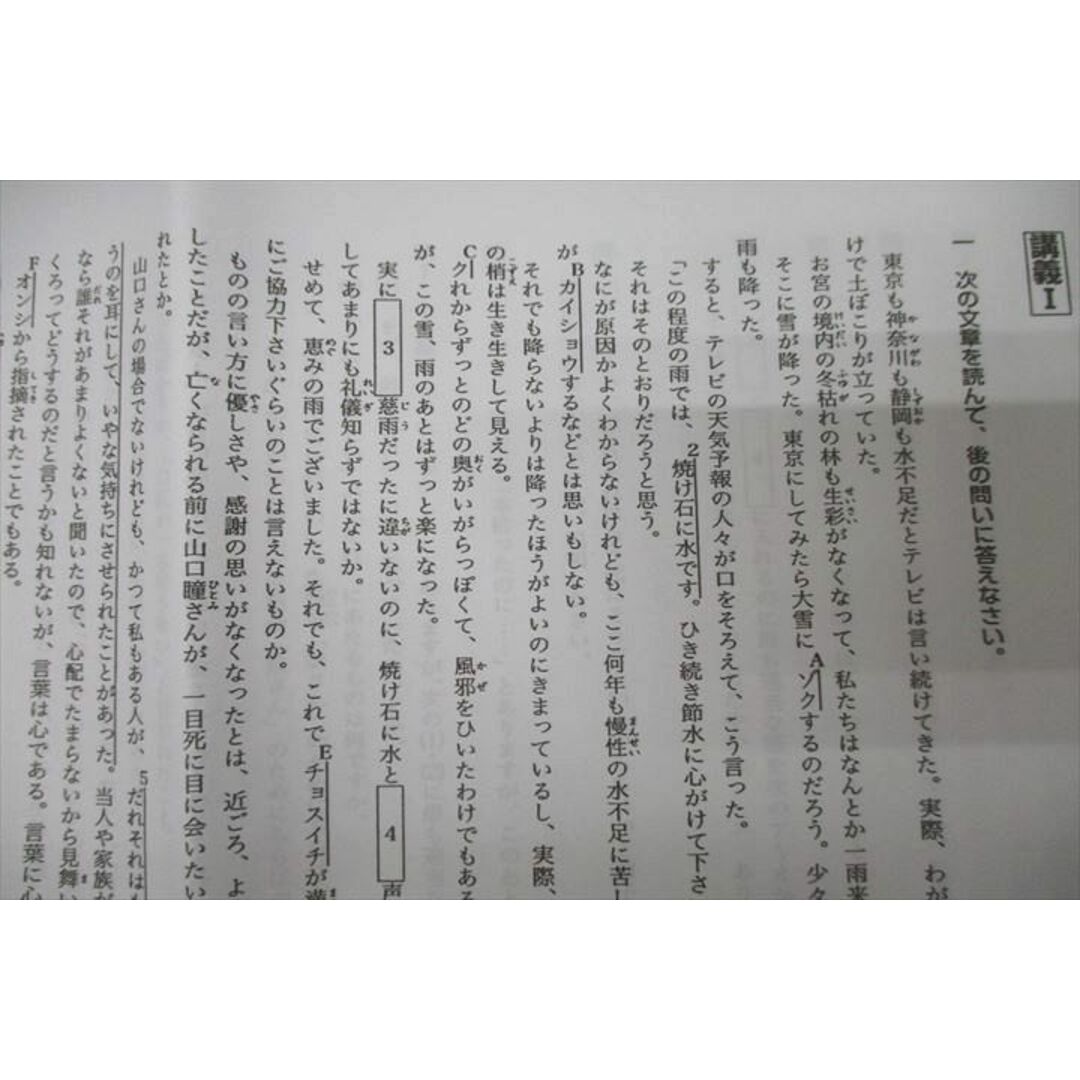 講義Ⅰ
一 次の文章を読んで、後の問いに答えなさい。
東京も神奈川も静岡も水不足だとテレビは言い続けてきた。実際、わが
けで土ぼこりが立っていた。
お宮の境内の冬枯れの林も生彩がなくなって、私たちはなんとか一雨来
そこに雪が降った。東京にしてみたら大雪にAゾクするのだろう。少々
雨も降った。
すると、テレビの天気予報の人々が口をそろえて、こう言った。
「この程度の雨では、2焼け石に水です。ひき続き節水に心がけて下さ
それはそのとおりだろうと思う。
なにが原因かよくわからないけれども、ここ何年も慢性の水不足に苦し
がBカイショウするなどとは思いもしない。
それでも降らないよりは降ったほうがよいのにきまっているし、実際、
の梢は生き生きして見える。
Cクれからずっとのどの奥がいがらっぽくて、風邪をひいたわけでもある
が、この雪、雨のあとはずっと楽になった。
実に3慈雨だったに違いないのに、焼け石に水と4声
してあまりにも礼儀知らずではないか。
せめて、恵みの雨でございました。それでも、これでEチョスイチが満
にご協力下さいぐらいのことは言えないものか。
ものの言い方に優しさや、感謝の思いがなくなったとは、近ごろ、よ
したことだが、亡くなられる前に山口瞳さんが、一目死に目に会いたい
れたとか。
山口さんの場合でないけれども、かつて私もある人が、5だれそれは
うのを耳にして、いやな気持ちにさせられたことがあった。当人や家族が
なら誰それがあまりよくないと聞いたので、心配でたまらないから見舞い
くろってどうするのだと言うかも知れないが、言葉は心である。言葉に心
Fオンシから指摘されたことでもある。